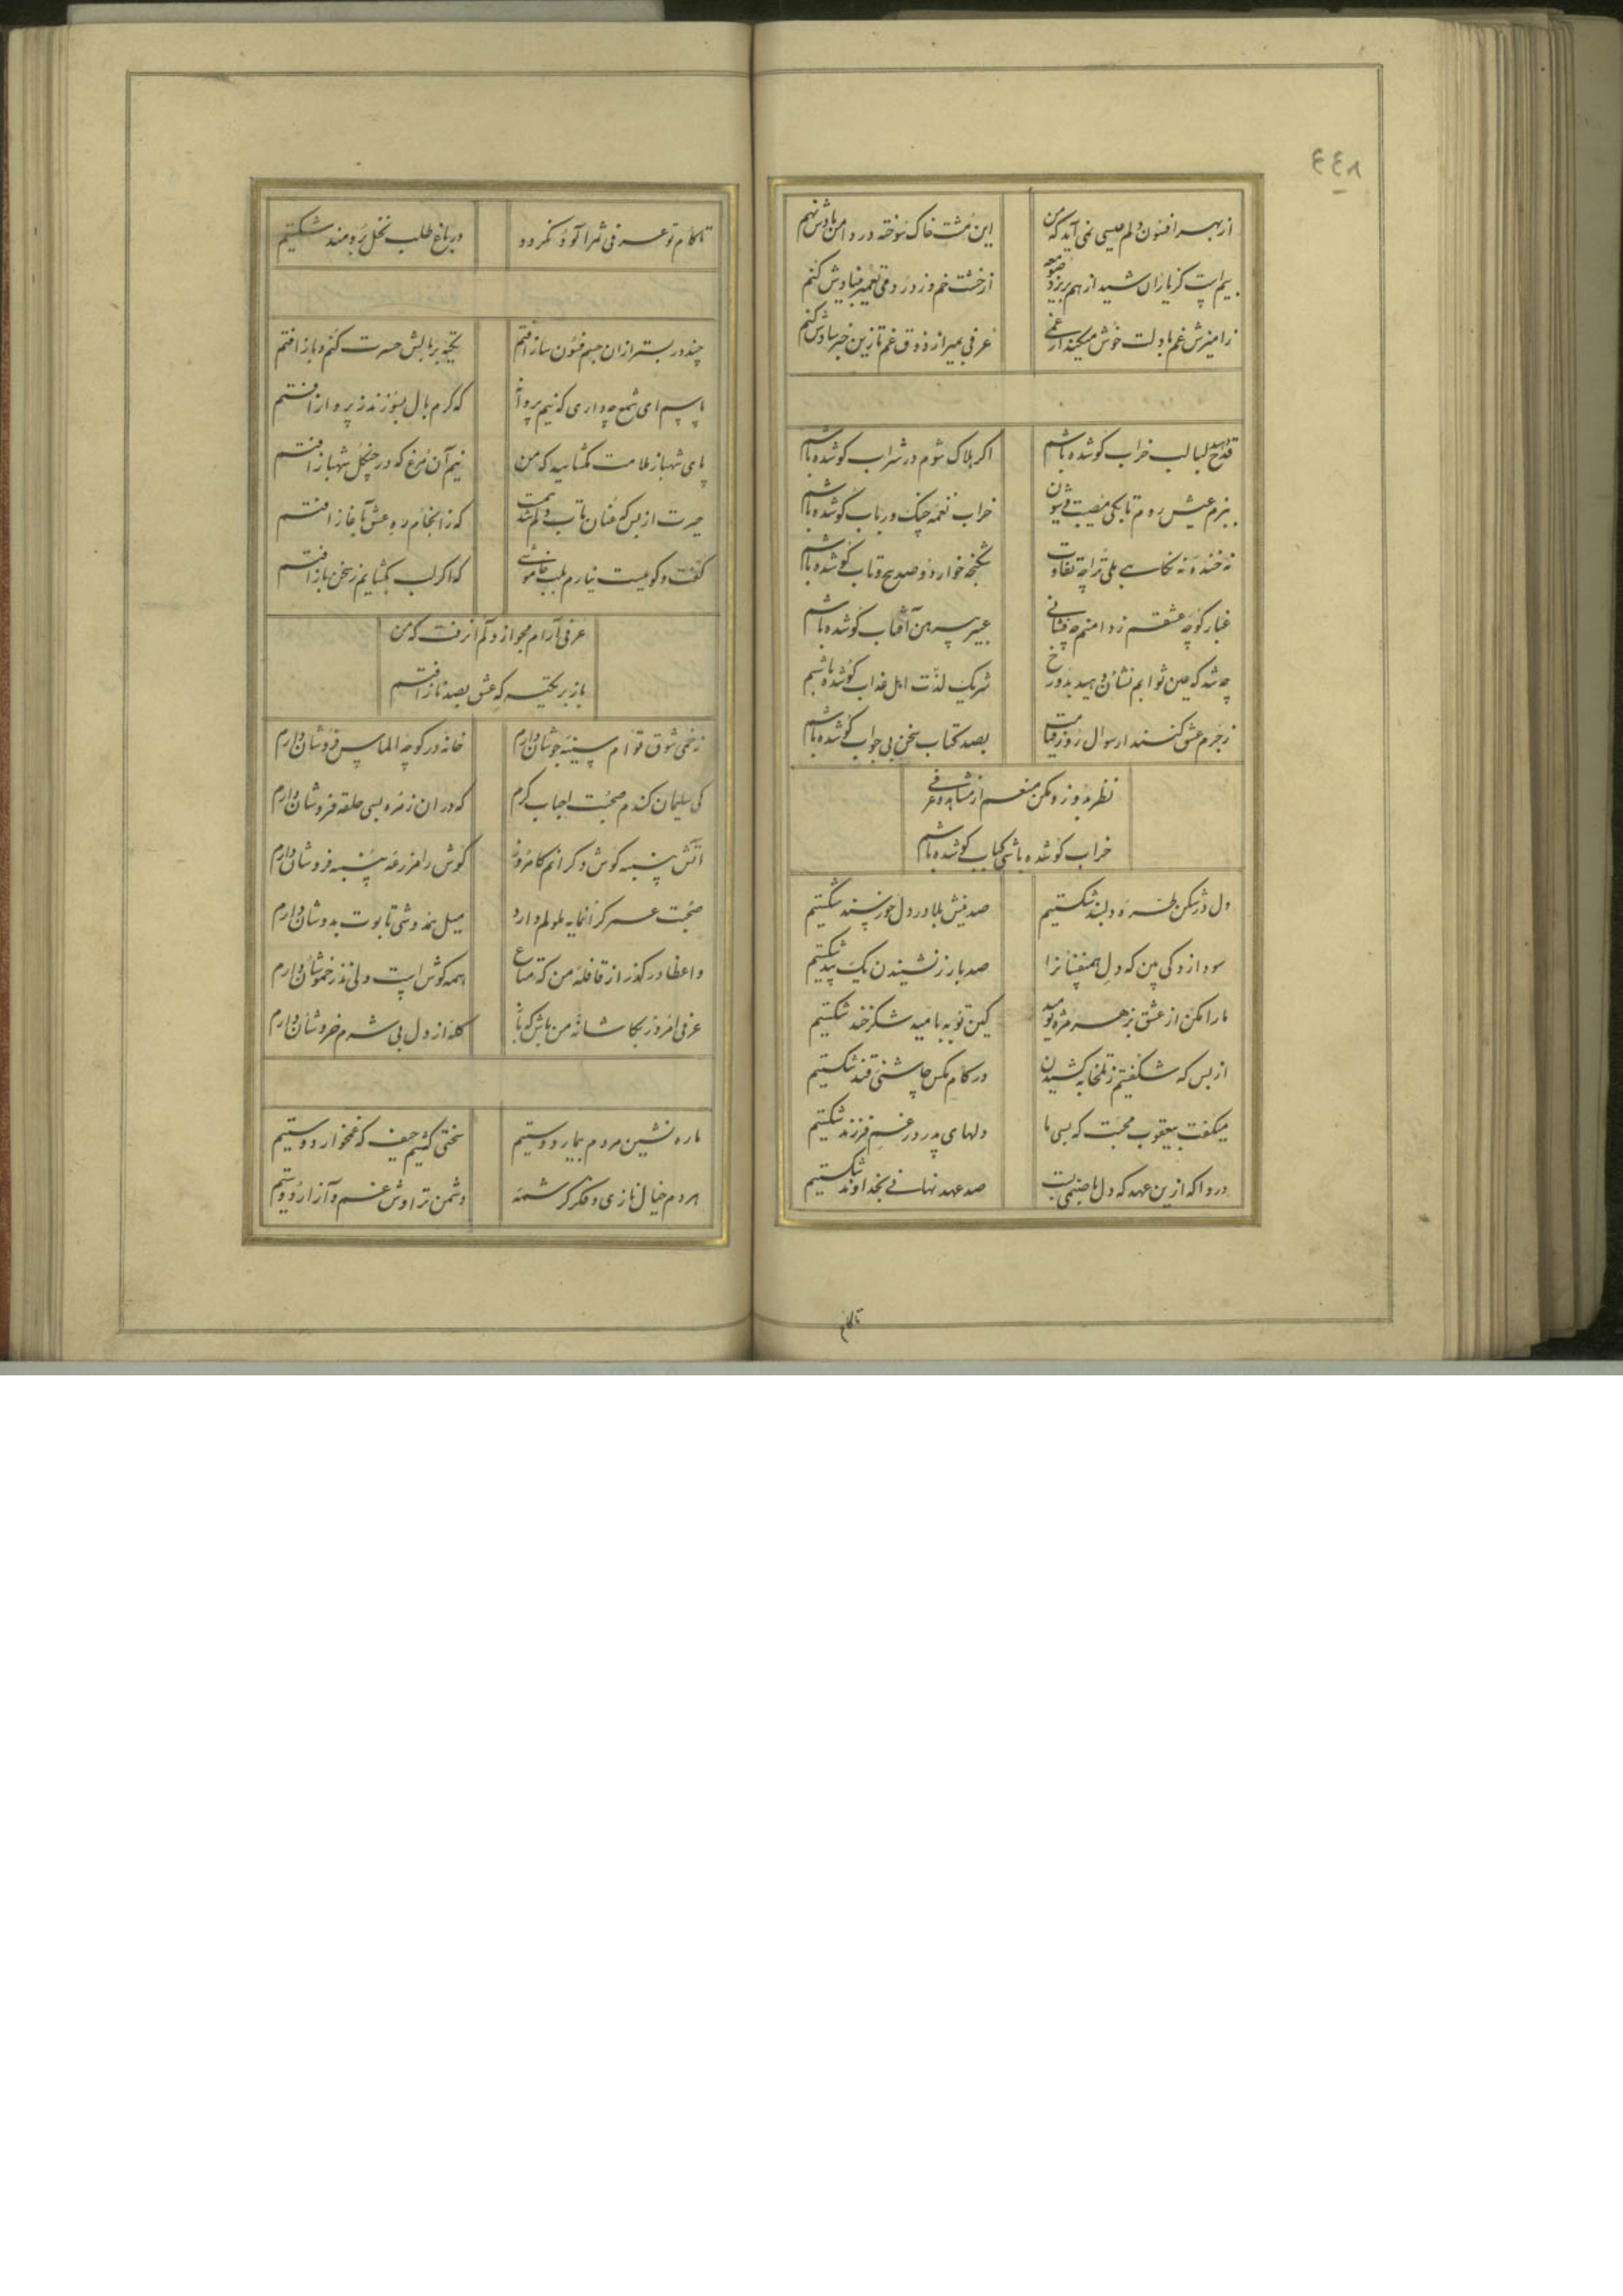 ٤٤٨
از بهر افسون دلم عیسی نمی آید که من
این مشت خاک سوخته در دامن بادش نهم
بیم است کز باران شید از هم بریزد صومعه
از خشت خم وز درد می تعمیر بنیادش کنم
زآمیزش غم با دلت خوش میکند
عرفی بمیر از ذوق غم تا زین خبر شادش کنم
قدح دهید لبالب خراب کو شده باشم
اگر هلاک شوم در شراب کو شده باشم
ببزم عیش روم تا بکی مصیبت و شیون
خراب نغمه چنگ و رباب کو شده باشم
نه خنده نه نگاهی بلی ترا چه تفاوت
شکنجه خوار دو صد پیچ و تاب کو شده باشم
غبار کوچه عشقم ز دامنم چه فشانی
عبیر پیرهن آفتاب کو شده باشم
چه شد که عین ثوابم نشان دهید بدوزخ
شریک لذت اهل عذاب کو شده باشم
ز جرم عشق کنند ار سوال روز قیامت
بصد کتاب سخن بی جواب کو شده باشم
نظر بدوز و مکن منعم از مشاهده عرفی
خراب کو شده باشی کباب کو شده باشم
دل در شکن طره دلبند شکستیم
صد نیش بلا در دل خورسند شکستیم
سودازدگی بین که دل همنفسانرا
صد بار ز نشنیدن یک پند شکستیم
ما را مکن از عشق بزهر مژه نومید
کین توبه بامید شکرخند شکستیم
از بس که شکفتیم ز تلخابه کشیدن
در کام مگس چاشنی قند شکستیم
میگفت بیعقوب محبت که بسی ما
دلهای پدر در غم فرزند شکستیم
دردا که ازین عهد که دل با صنمی بست
صد عهد نهانی بخداوند شکستیم
تا کام
تا کام تو عرفی ثمرآلود نگردد
در باغ طلب نخل برومند شکستیم
چند در بستر ازان چشم فسون ساز افتم
تکیه بر بالش حسرت کنم و باز افتم
پاسم ای شمع چه داری که نیم پروانه
که گرم بال بسوزند ز پرواز افتم
پای شهباز ملامت بگشایید که من
نیم آن مرغ که در چنگل شهباز افتم
حیرت از بس که عنان تاب دلم شد همت
که ز انجام ره عشق باغاز افتم
گفت و گو نیست نیارم بلب خاموشی
که اگر لب بگشایم ز سخن باز افتم
عرفی آرام مجو از دلم از رفت که من
باز بر تکیه که عشق بصد ناز افتم
زخمی شوق توام سینه جوشان دارم
خانه در کوچه الماس فروشان دارم
کی سلیمان کندم صحبت احباب کرم
که در ان زمره بسی حلقه فروشان دارم
آتش پنبه گوش دگرانم کامروز
گوش را مزرعه پنبه فروشان دارم
صحبت عمر گرانمایه ملولم دارد
میل همدوشی تابوت بدوشان دارم
واعظا در گذر از قافله من که متاع
همه گوش است ولی نذر خموشان دارم
عرفی امروز بکاشانه من باش که باز
گله از دل بی شرم خروشان دارم
ما ره نشین مردم بیمار دوستیم
سختی کشیم حیف که غمخوار دوستیم
مردم خیال نازی و فکر کرشمه
دشمن تراوش غم و آزار دوستیم